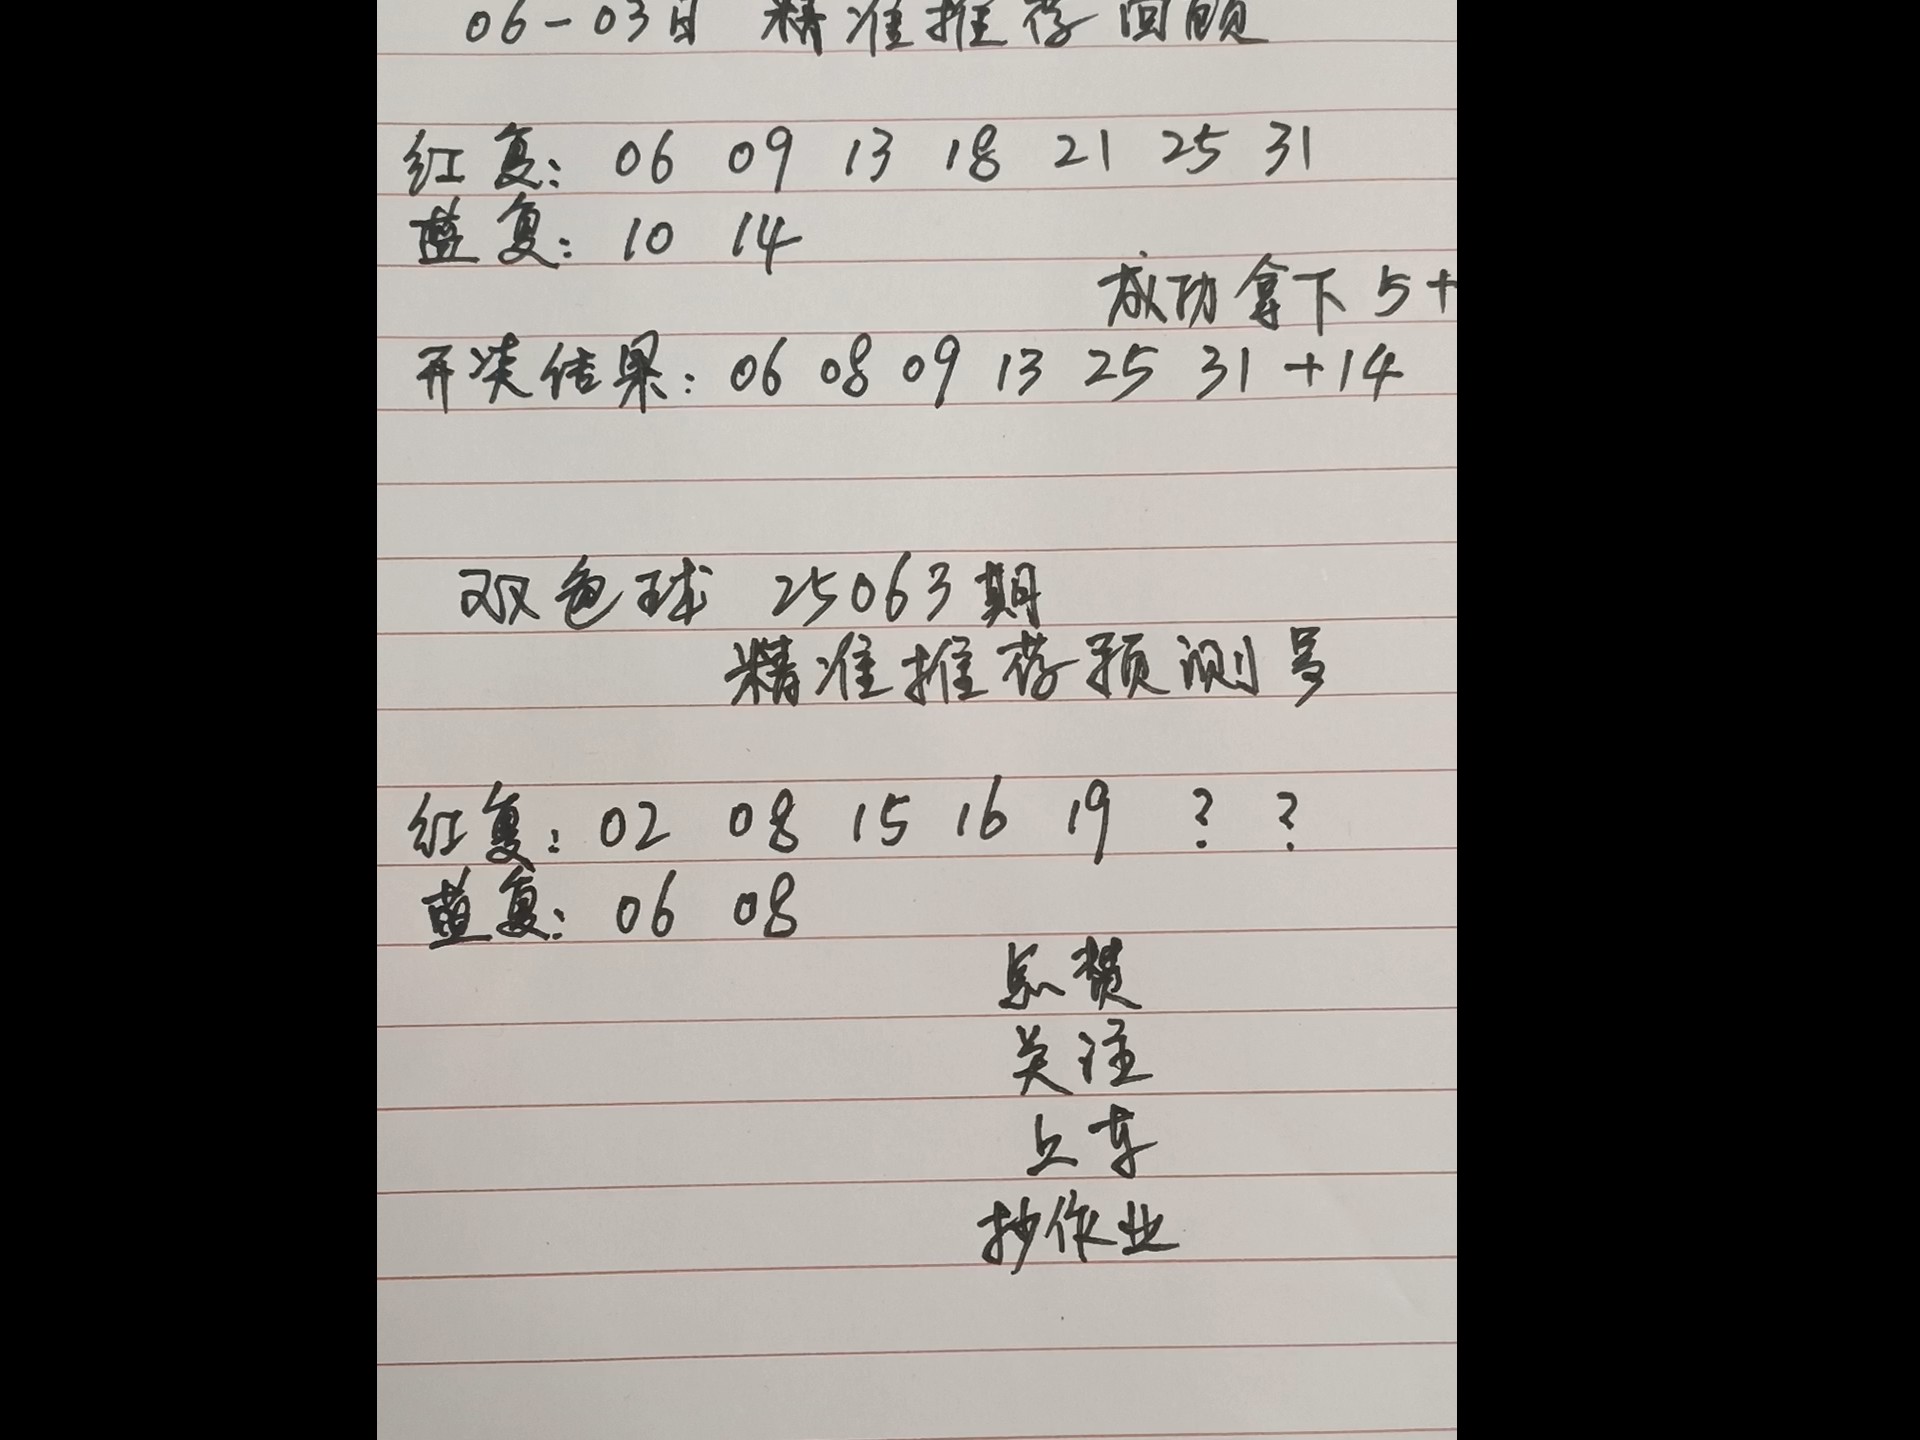 06-03日 精准推荐回顾
红复: 06 09 13 18 21 25 31
蓝复: 10 14
成功拿下 5+
开奖结果: 06 08 09 13 25 31 +14
双色球 25063期
精准推荐预测号
红复: 02 08 15 16 19 ? ?
蓝复: 06 08
点赞
关注
上车
抄作业